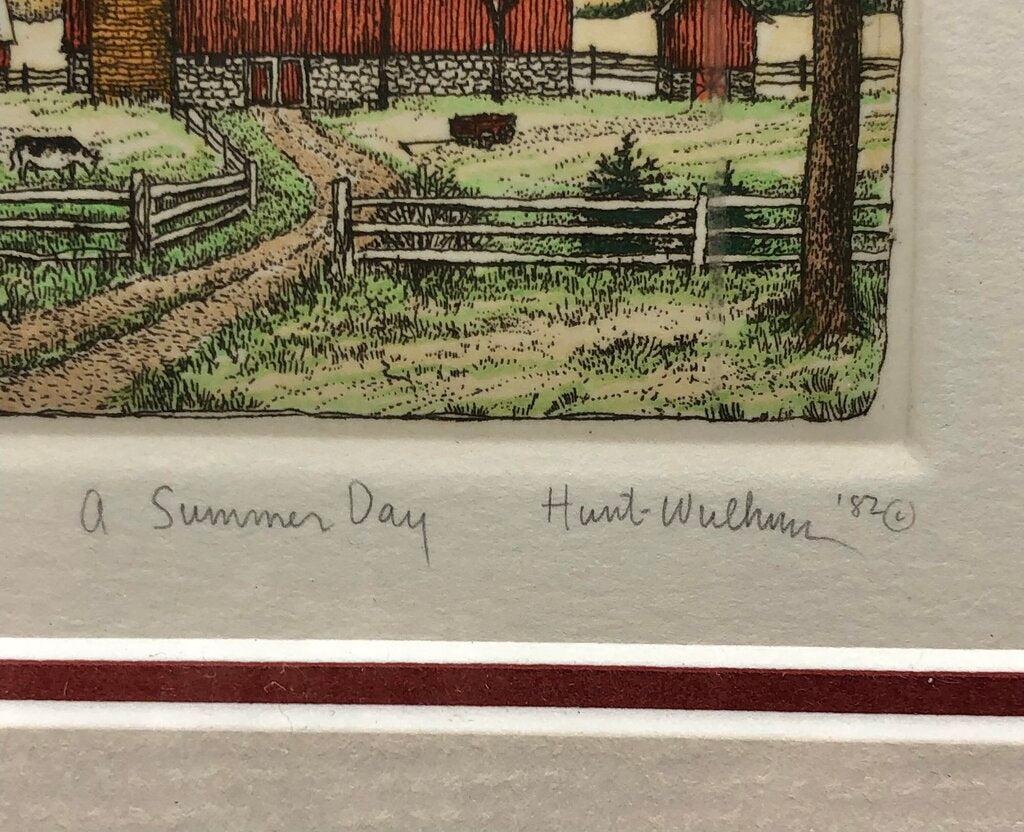 A Summer Day Hunt-Wulkow '82 ©